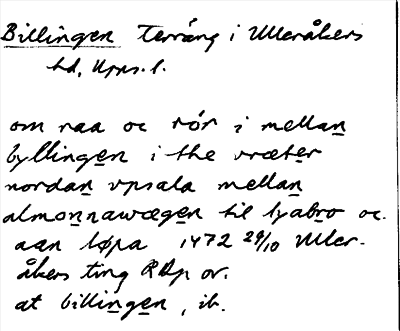 Billingen terräng i Ulleråkers
hd, Upps. l.
om raa oc rör i mellan
byllingen i the vræter
nordan vpsala mellan
almonnawægen til hzabro oc.
aan løpa 1472 29/10 Uller-
åkers ting RAp or.
at billingen, ib.